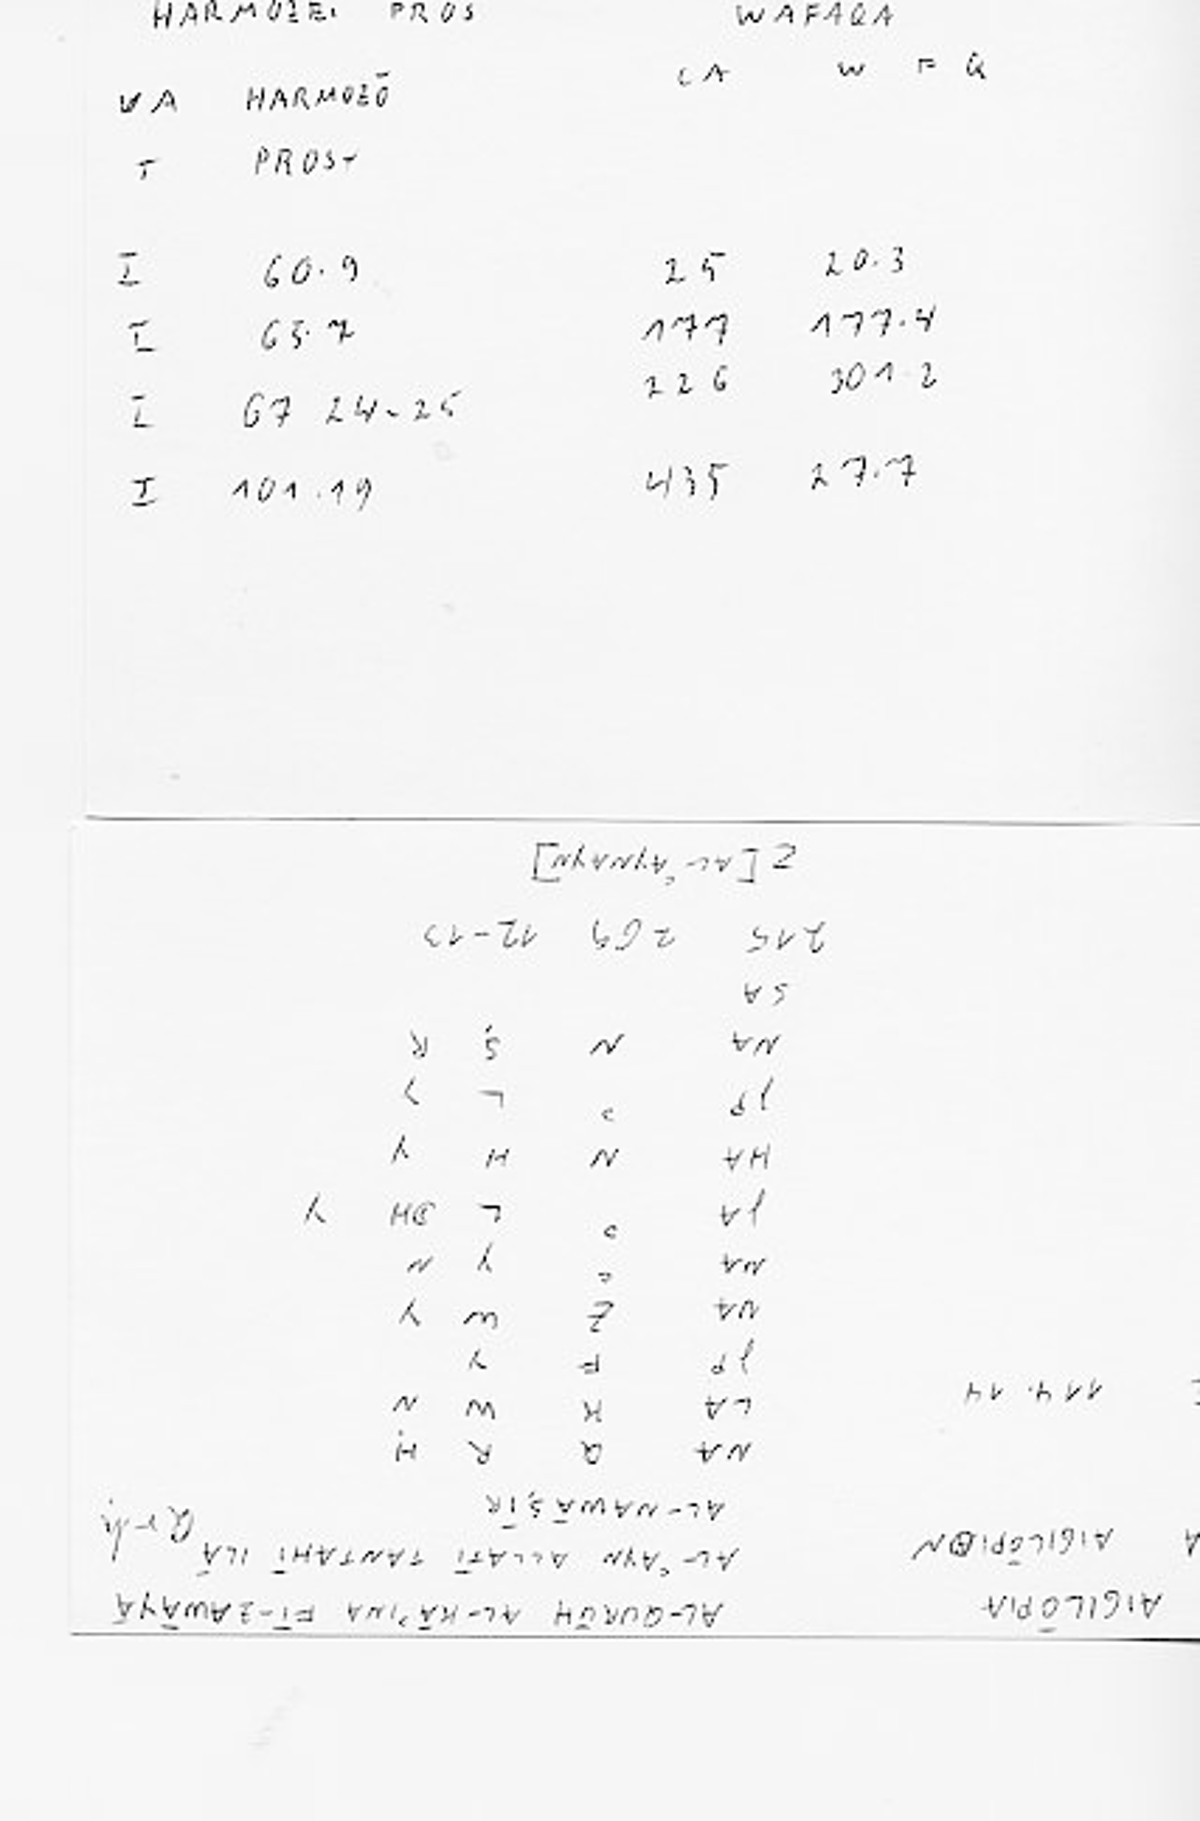 HARMOZEI PROS WAFAQA
VA HARMOZŌ LA W F Q
T PROS+
I 60.9 25 20.3
I 63.7 177 177.4
226 301.2
I 67 24-25
I 101.19 435 27.7
AIGILŌPIA AL-QURŪḤ AL-KĀʾINA FĪ-ZAWĀYĀ
A AIGILŌPION AL-ʿAYN ALLATĪ TANTAHĪ ILĀ Qrḥ
AL-NAWĀṢĪR
NA Q R Ḥ
114.14 LA K W N
JP F Y
NA Z W Y
NA ʿ Y N
JA ʾ L DH Y
HA N H Y
JP ʾ L Y
NA N Ṣ R
SA
215 269 12-13
Z [AL-ʿAYNAYN]